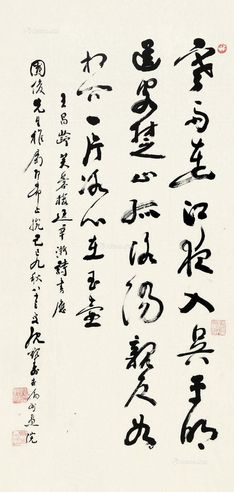 寒雨連江夜入吳平明
送客楚山孤洛陽親友如
相問一片冰心在玉壺
王昌齡芙蓉樓送辛漸詩書應
國俊先生雅屬己巳九秋八十